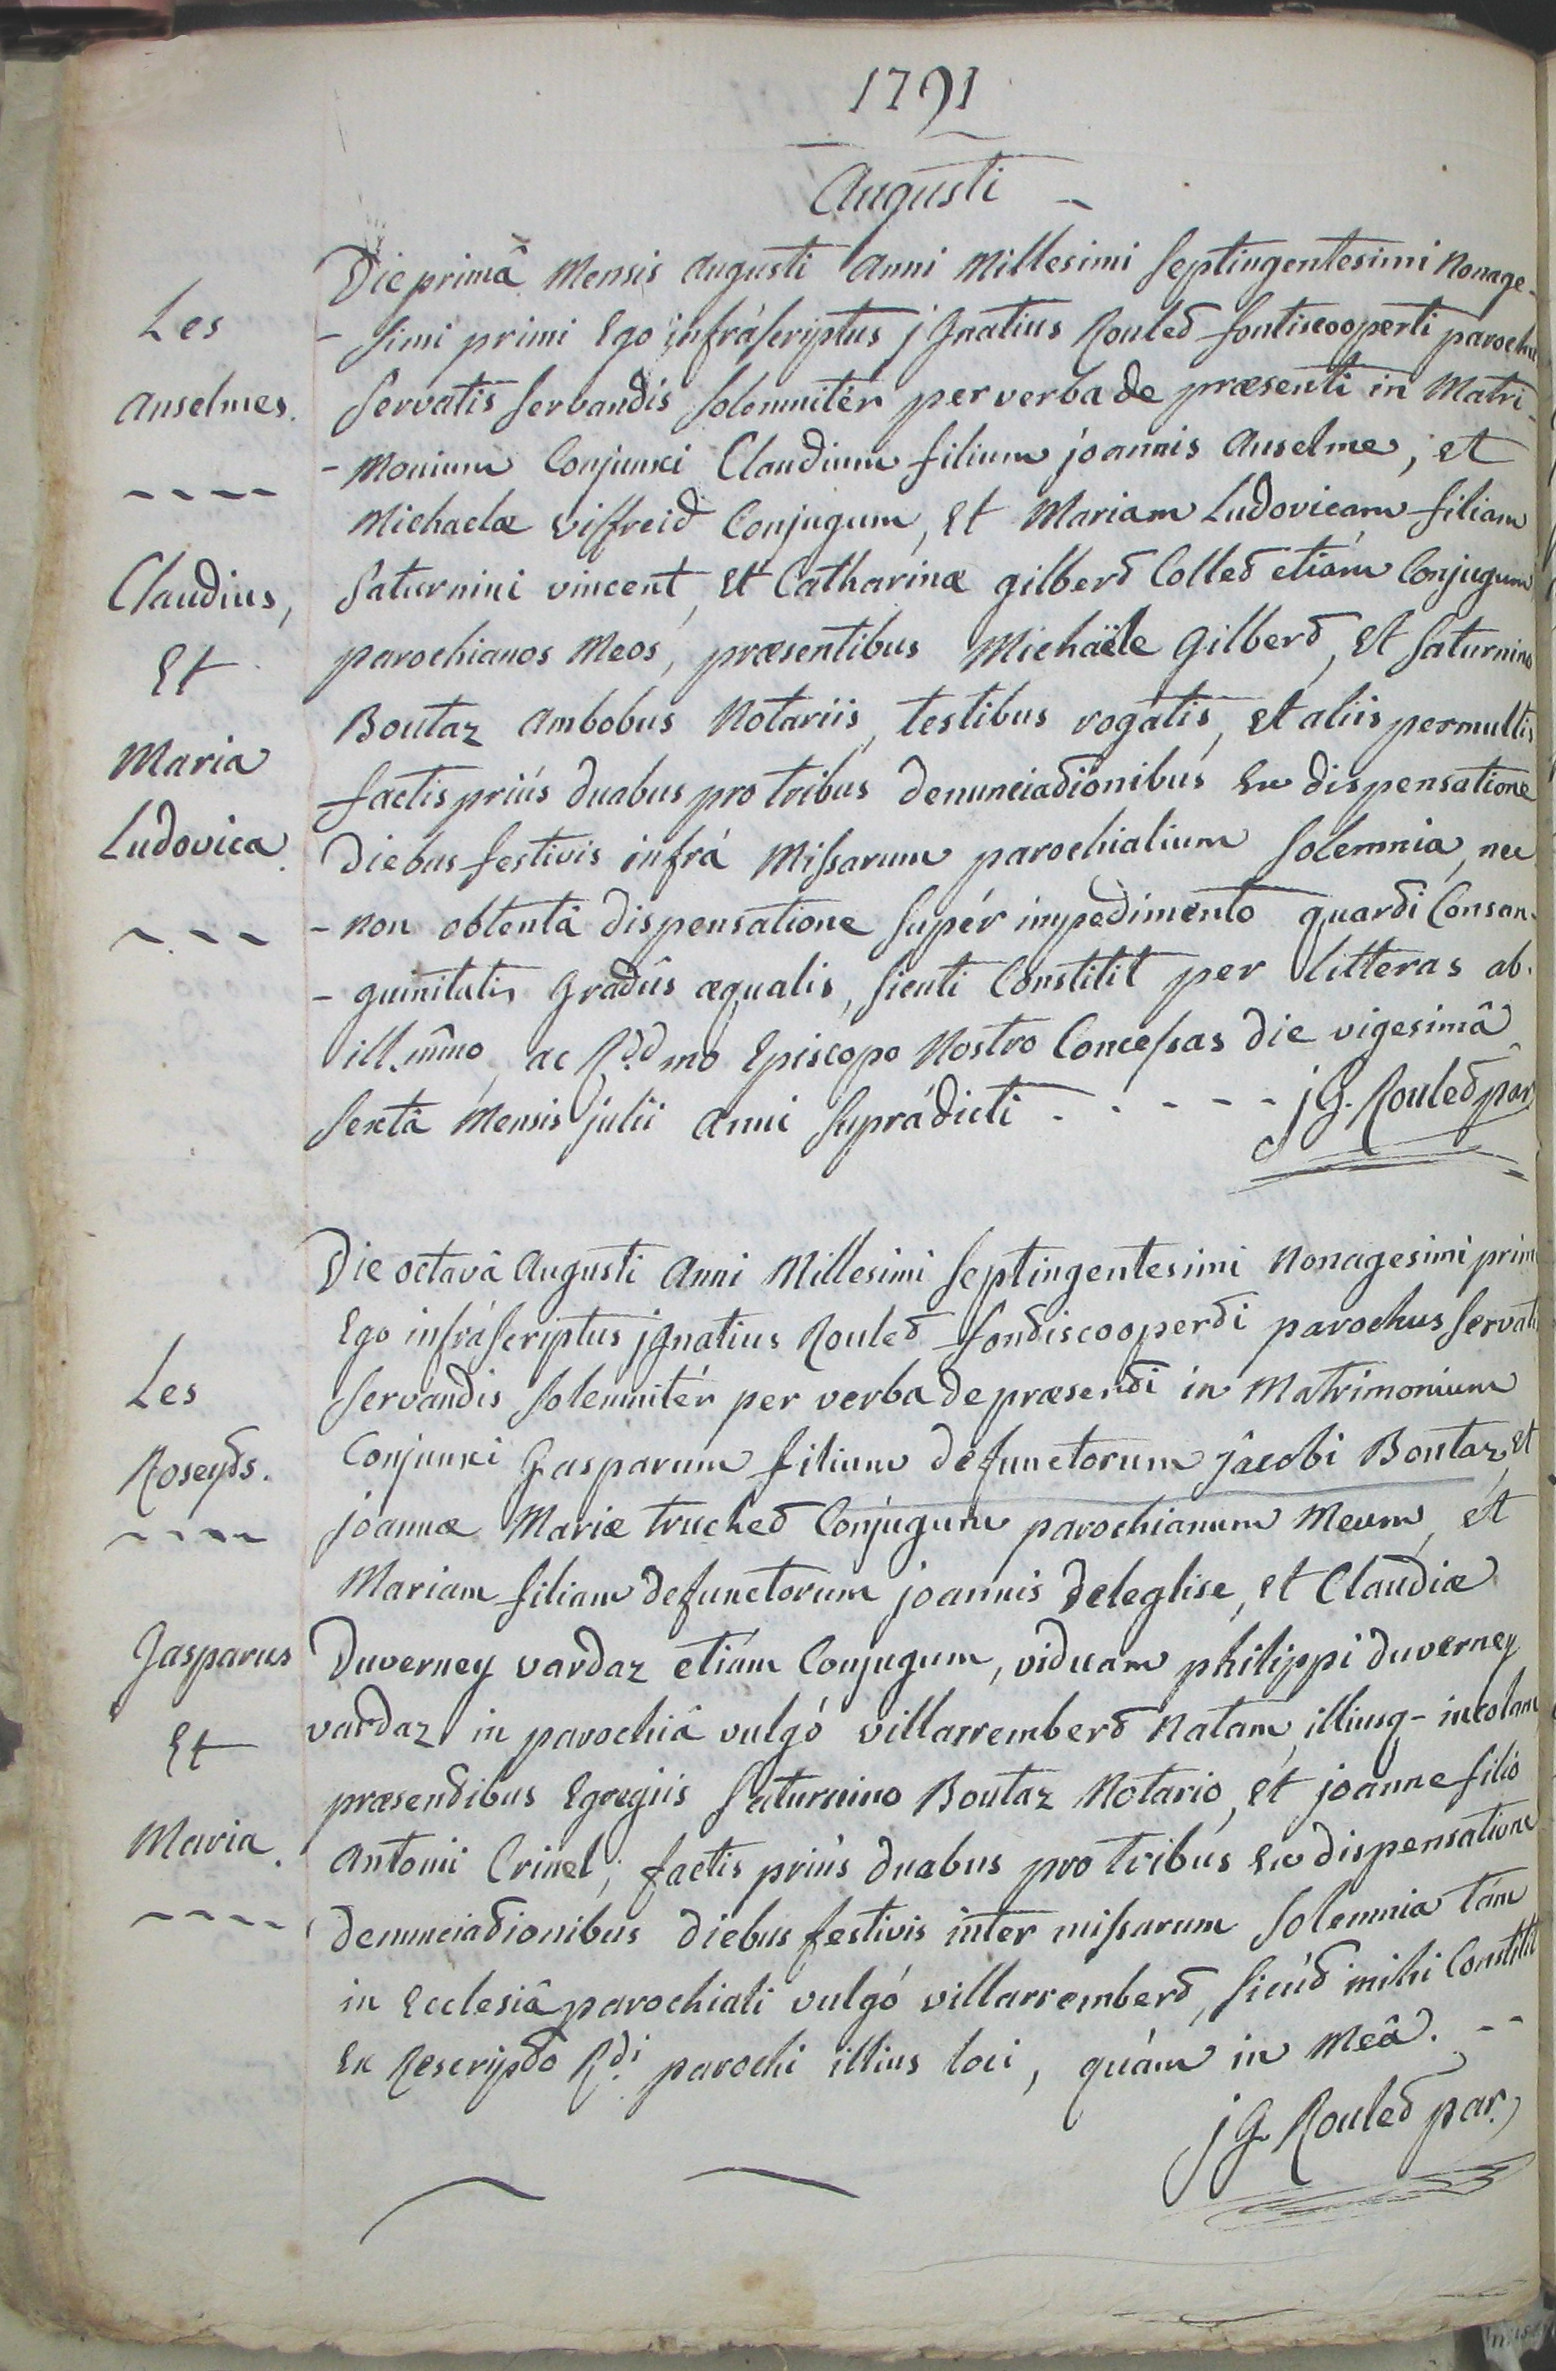 1791
Augusti
Les
Anselmes.
Claudius,
Et
Maria
Ludovica.
Die primâ Mensis Augusti Anni Millesimi Septingentesimi Nonage-
-simi primi Ego infráscriptus jgnatius Roulet fontiscooperti parochus
servatis servandis solemnitér per verba de præsenti in Matri-
-monium Conjunxi Claudium filium joannis Anselme, et
Michaelæ Viffreid Conjugum, Et Mariam Ludovicam filiam
Saturnini vincent, Et Catharinæ gilbert Collet etiám Conjugum
parochianos Meos, præsentibus Michaële Gilbert, Et Saturnino
Boutaz Ambobus Notariis, testibus rogatis, et aliis permultis
factis priús duabus pro tribus denunciationibus Ex dispensatione
diebus festivis infrá Missarum parochialium Solemnia, nec
-non obtentâ dispensatione supér impedimento quarti Consan-
-guinitatis Gradûs æqualis, sicuti Constitit per litteras ab
ill.mô ac R.ddmo Episcopo Nostro Concessas die vigesimâ
sextâ Mensis julii Anni suprádicti - - - - - jG. Roulet par.
Les
Roseyts.
Gasparus
Et
Maria.
Die octavâ Augusti Anni Millesimi Septingentesimi Nonagesimi primi
Ego infráscriptus jgnatius Roulet fontiscooperti parochus servatis
servandis solemnitér per verba de præsenti in Matrimonium
Conjunxi Gasparum filium defunctorum jacobi Boutaz, et
joannæ Mariæ truchet Conjugum parochianum Meum, et
Mariam filiam defunctorum joannis deleglise, Et Claudiæ
Duverney vardaz etiám Conjugum, viduam philippi duverney
vardaz in parochiâ vulgó villarrembert Natam, illiusq- incolam
præsentibus Egregiis Saturnino Boutaz Notario, Et joanne filio
Antonii Crinel, factis priús duabus pro tribus Ex dispensatione
denunciationibus diebus festivis inter missarum Solemnia tám
in Ecclesiâ parochiali vulgó villarrembert, sicút mihi Constitit
Ex Rescripto R.di parochi illius loci, quám in Meâ. --
jG. Roulet par.